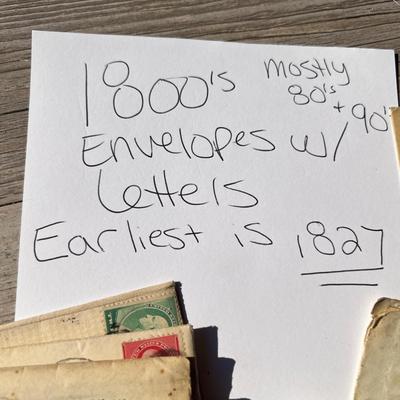 1800's
mostly
80's
+ 90's
Envelopes w/
Letters
Earliest is 1827